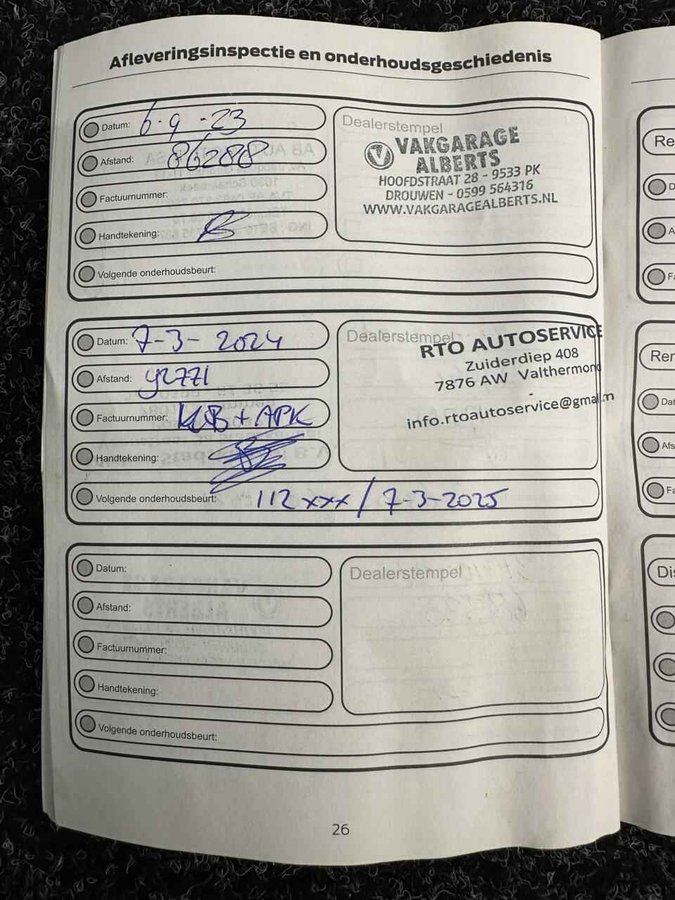 Afleveringsinspectie en onderhoudsgeschiedenis
Datum: 6-9-23
Afstand: 86288
Factuurnummer:
Handtekening:
Volgende onderhoudsbeurt:
Dealerstempel
VAKGARAGE
ALBERTS
HOOFDSTRAAT 28 - 9533 PK
DROUWEN - 0599 564316
WWW.VAKGARAGEALBERTS.NL
Datum: 7-3-2024
Afstand: 92771
Factuurnummer: KLB + APK
Handtekening:
Volgende onderhoudsbeurt: 112xxx / 7-3-2025
Dealerstempel
RTO AUTOSERVICE
Zuiderdiep 408
7876 AW Valthermond
info.rtoautoservice@gmail.m
Datum:
Afstand:
Factuurnummer:
Handtekening:
Volgende onderhoudsbeurt:
Dealerstempel
26